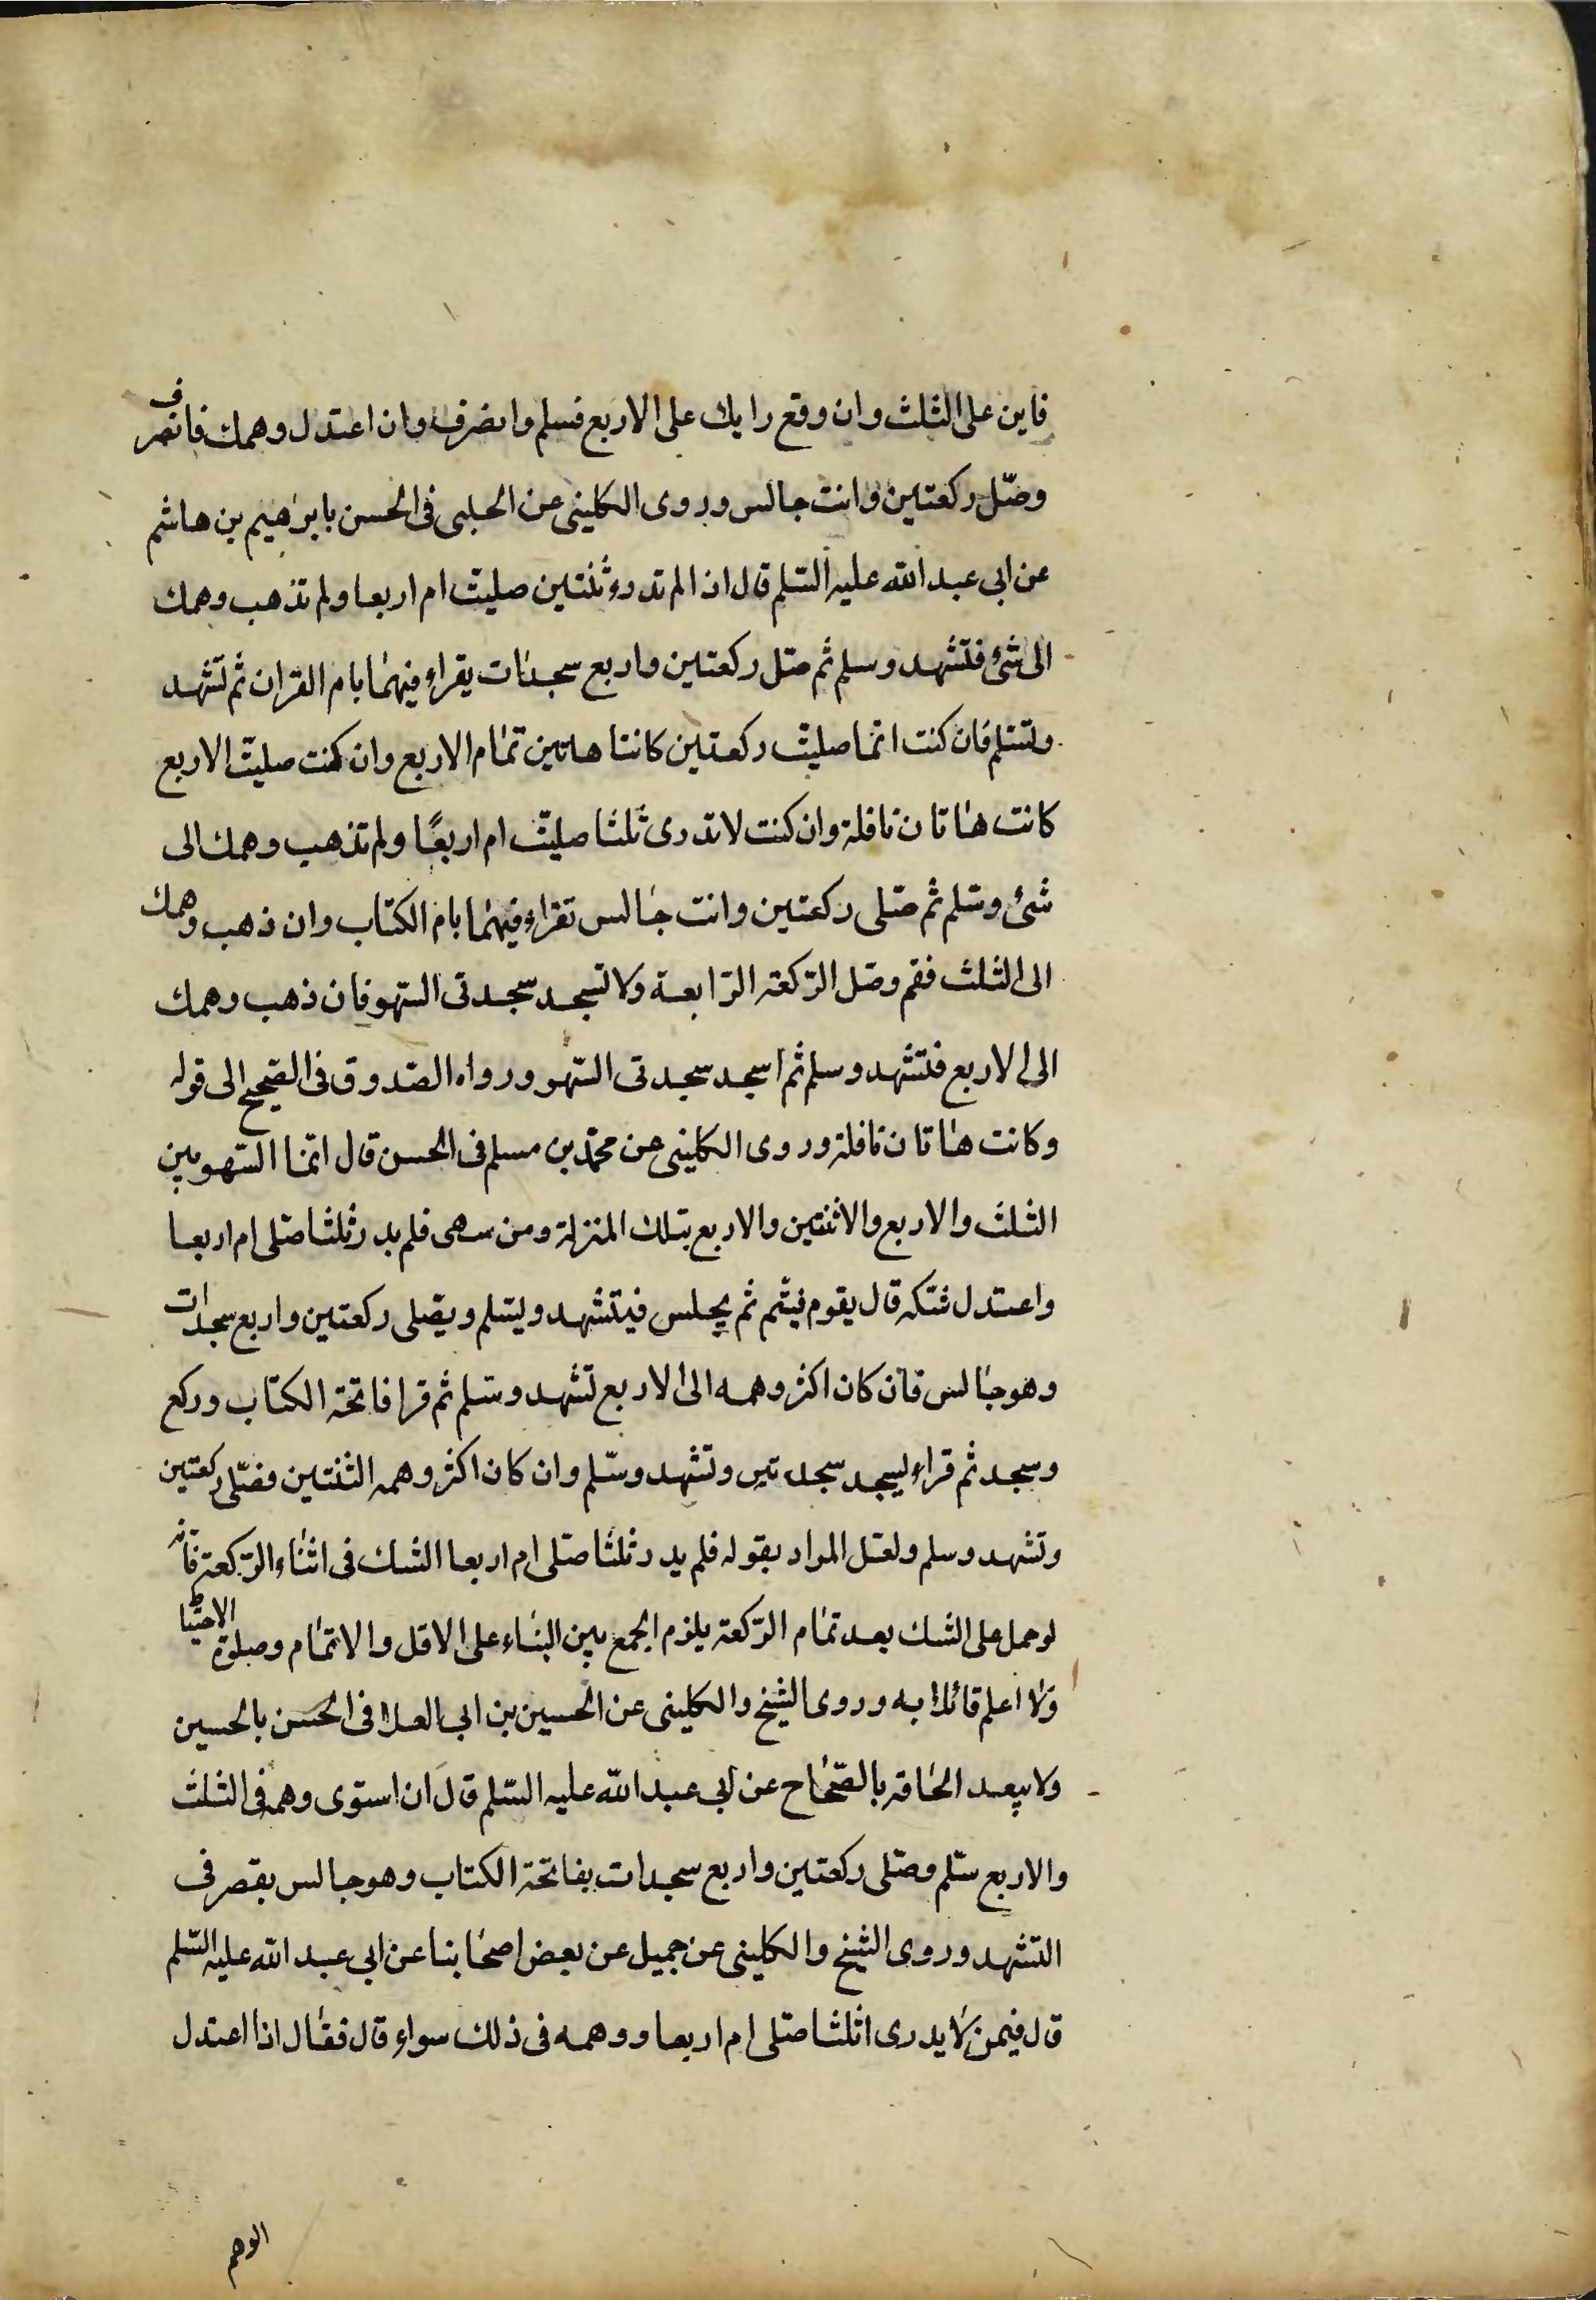 فابن على الثلث وان وقع رايك على الاربع فسلم وانصرف وان اعتدل وهمك فانصرف
وصّل ركعتين وانت جالس وروى الكلينى عن الحلبى فى الحسن بابرهيم بن هاشم
عن ابى عبد الله عليه السّلم قال اذا لم تدر وثنتين صليت ام اربعا ولم تذهب وهمك
الى شئ فتشهد وسلم ثم صّل ركعتين واربع سجدات يقراء فيهما بام القران ثم تشهد
وتسّلم فان كنت انما صليت ركعتين كانتا هاتين تمام الاربع وان كنت صليت الاربع
كانت هاتان نافلة وان كنت لا تدرى ثلثا صليت ام اربعًا ولم تذهب وهمك الى
شئ وسّلم ثم صّلى ركعتين وانت جالس تقراء فيهما بام الكتاب وان ذهب وهمك
الى الثلث فقم وصّل الرّكعة الرّابعة ولا تسجد سجدتى السّهو فان ذهب وهمك
الى الاربع فتشهد وسلم ثم اسجد سجدتى السّهو ورواه الصّدوق فى الصّحيح الى قوله
وكانت هاتان نافلة وروى الكلينى عن محمّد بن مسلم فى الحسن قال انما السّهو بين
الثلث والاربع والاثنتين والاربع بتلك المنزلة ومن سهى فلم يدر ثلثا صّلى ام اربعا
واعتدل شّكه قال يقوم فيتم ثم يجلس فيتشهد ويسّلم ويصّلى ركعتين واربع سجدات
وهو جالس فان كان اكثر وهمه الى الاربع تشهد وسّلم ثم قرا فاتحة الكتاب وركع
وسجد ثم قراء ليسجد سجدتين وتشهد وسّلم وان كان اكثر وهمه الثنتين فصّلى ركعتين
وتشهد وسلم ولعّل المراد بقوله فلم يدر ثلثا صّلى ام اربعا الشك فى اثناء الرّكعة فانّه
لو حمل على الشك بعد تمام الرّكعة يلزم الجمع بين البناء على الاقل والاتمام وصلوة الاحتياط
ولا اعلم قائلا به وروى الشيخ والكلينى عن الحسين بن ابى العلا فى الحسن بالحسين
ولا يبعد الحاقه بالصّحاح عن ابى عبد الله عليه السّلم قال ان استوى وهمه فى الثلث
والاربع سّلم وصّلى ركعتين واربع سجدات بفاتحة الكتاب وهو جالس يقصر فى
التشهد وروى الشيخ والكلينى عن جميل عن بعض اصحابنا عن ابى عبد الله عليه السّلم
قال فيمن لا يدرى اثلثا صّلى ام اربعا ووهمه فى ذلك سواء قال فقال اذا اعتدل
الوهم